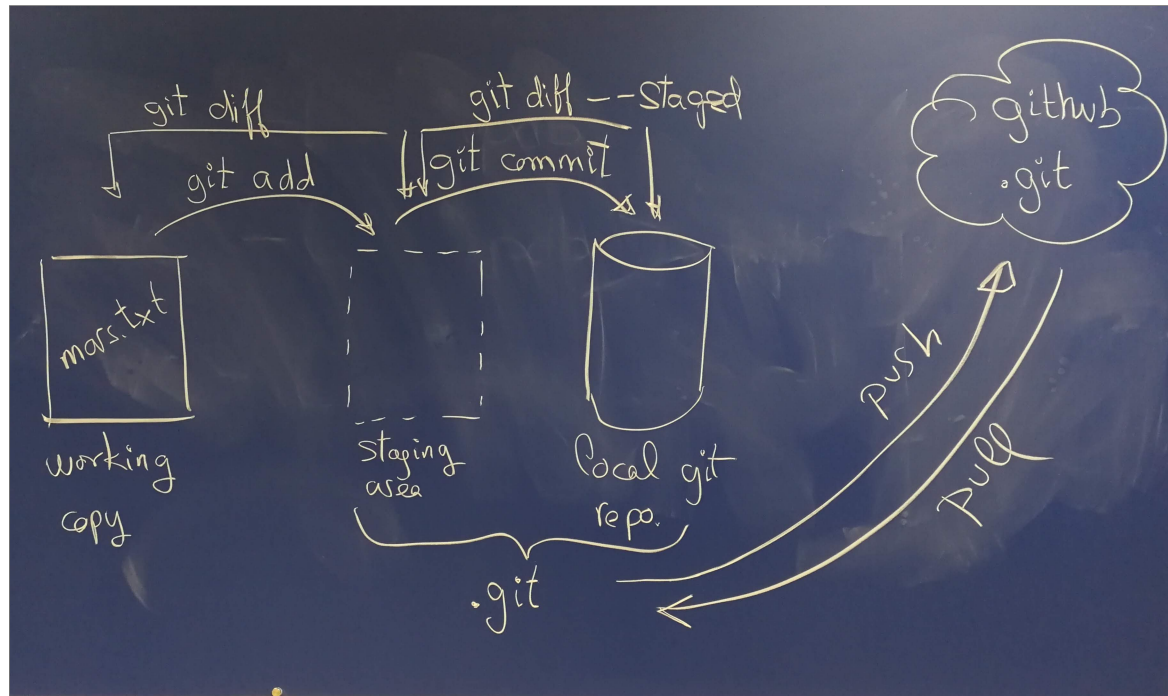 git diff
git diff --staged
git add
git commit
github
.git
mars.txt
working
copy
staging
area
local git
repo.
.git
push
pull